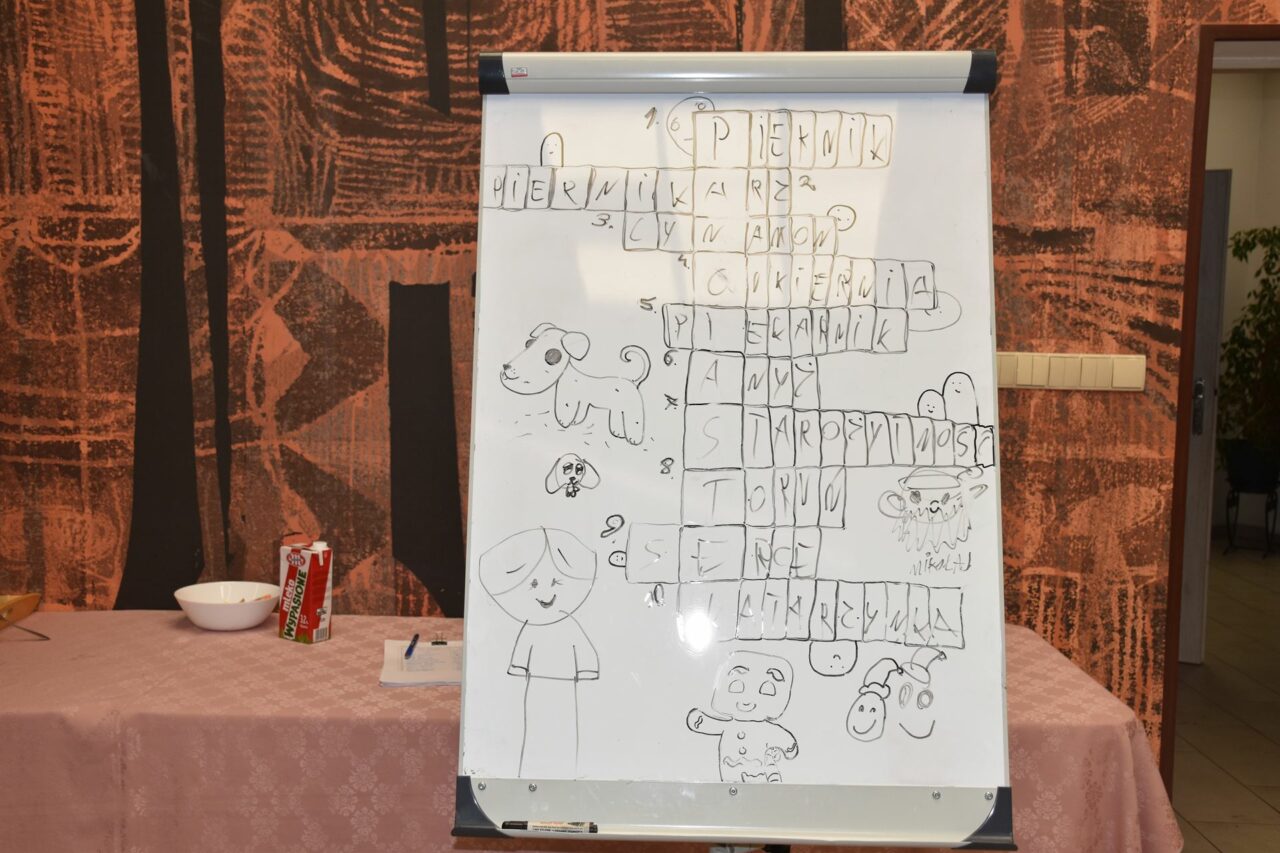 1. PIERNIK
PIERNIKARZ 2
3. CYNAMON
4. CUKIERNIA
5. PIEKARNIK
6 ANYŻ
7. STAROŻYTNOŚĆ
8. TORUŃ
9. SERCE
MIKOŁAJ
10 KATARZYNKA
mleko
WYPASIONE